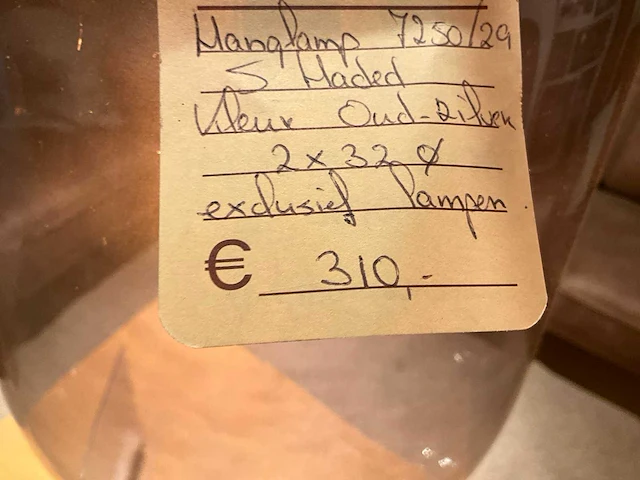 Hanglamp 7250/29
S Maded
Kleur Oud-Zilver
2 x 32 Ø
exclusief lampen
€ 310,-